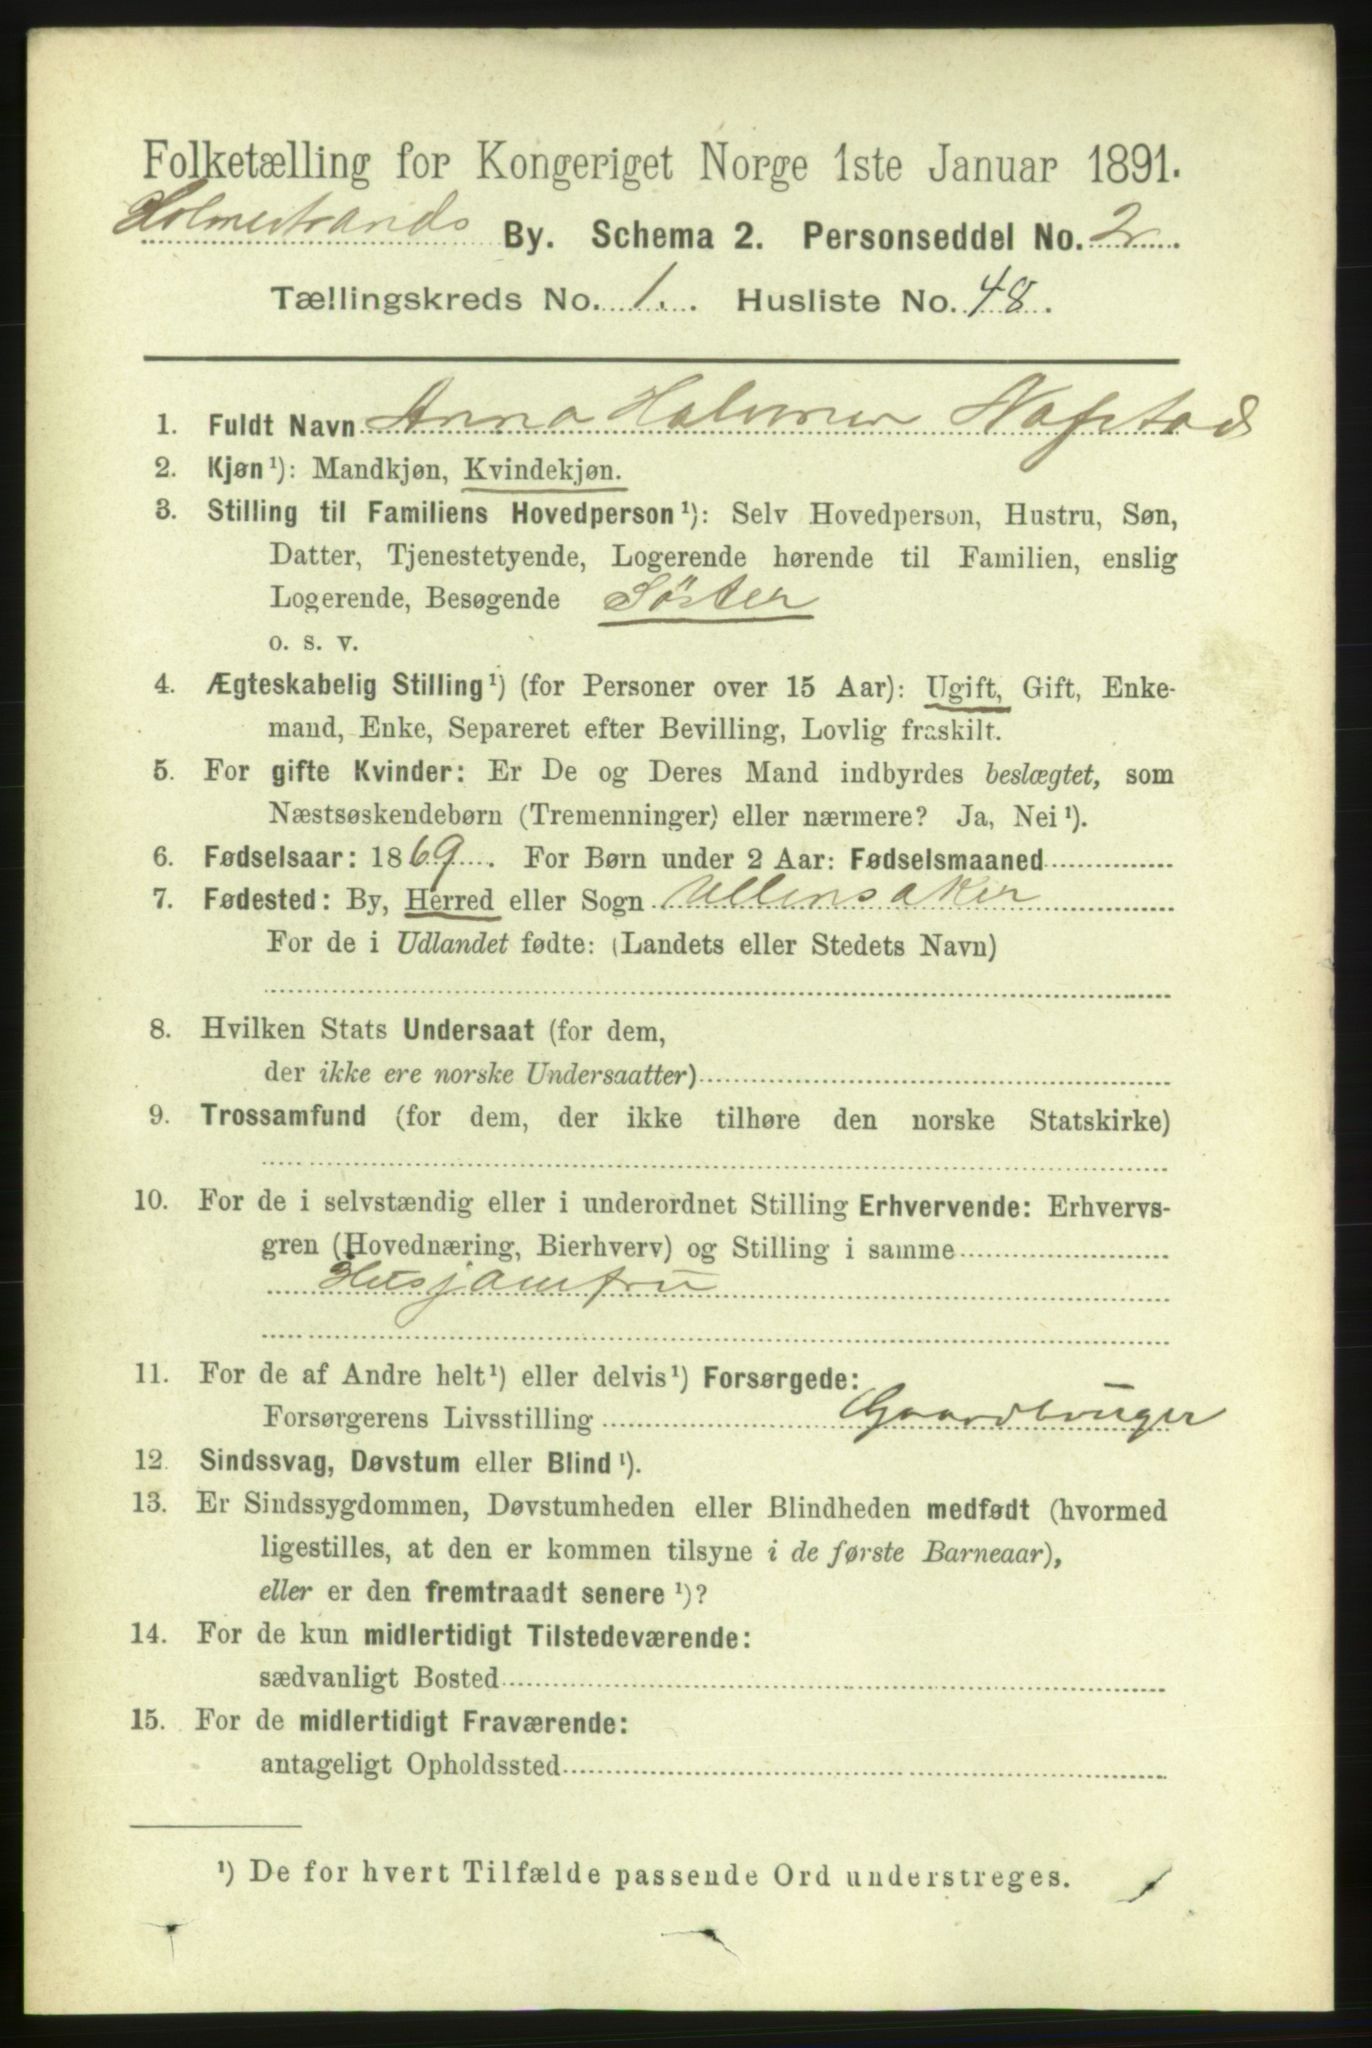 Folketælling for Kongeriget Norge 1ste Januar 1891.
Holmestrands By. Schema 2. Personseddel No. 2
Tællingskreds No. 1. Husliste No. 48.
1. Fuldt Navn Anna Halvorsen Nafstad
2. Kjøn¹): Mandkjøn, Kvindekjøn.
3. Stilling til Familiens Hovedperson¹): Selv Hovedperson, Hustru, Søn,
Datter, Tjenestetyende, Logerende hørende til Familien, enslig
Logerende, Besøgende Söster
o. s. v.
4. Ægteskabelig Stilling¹) (for Personer over 15 Aar): Ugift, Gift, Enke-
mand, Enke, Separeret efter Bevilling, Lovlig fraskilt.
5. For gifte Kvinder: Er De og Deres Mand indbyrdes beslægtet, som
Næstsøskendebørn (Tremenninger) eller nærmere? Ja, Nei¹).
6. Fødselsaar: 1869. For Børn under 2 Aar: Fødselsmaaned
7. Fødested: By, Herred eller Sogn Ullensaker
For de i Udlandet fødte: (Landets eller Stedets Navn)
8. Hvilken Stats Undersaat (for dem,
der ikke ere norske Undersaatter)
9. Trossamfund (for dem, der ikke tilhøre den norske Statskirke)
10. For de i selvstændig eller i underordnet Stilling Erhvervende: Erhvervs-
gren (Hovednæring, Bierhverv) og Stilling i samme
Husjomfru
11. For de af Andre helt¹) eller delvis¹) Forsørgede:
Forsørgerens Livsstilling Gaardbruger
12. Sindssvag, Døvstum eller Blind¹).
13. Er Sindssygdommen, Døvstumheden eller Blindheden medfødt (hvormed
ligestilles, at den er kommen tilsyne i de første Barneaar),
eller er den fremtraadt senere¹)?
14. For de kun midlertidigt Tilstedeværende:
sædvanligt Bosted
15. For de midlertidigt Fraværende:
antageligt Opholdssted
¹) De for hvert Tilfælde passende Ord understreges.